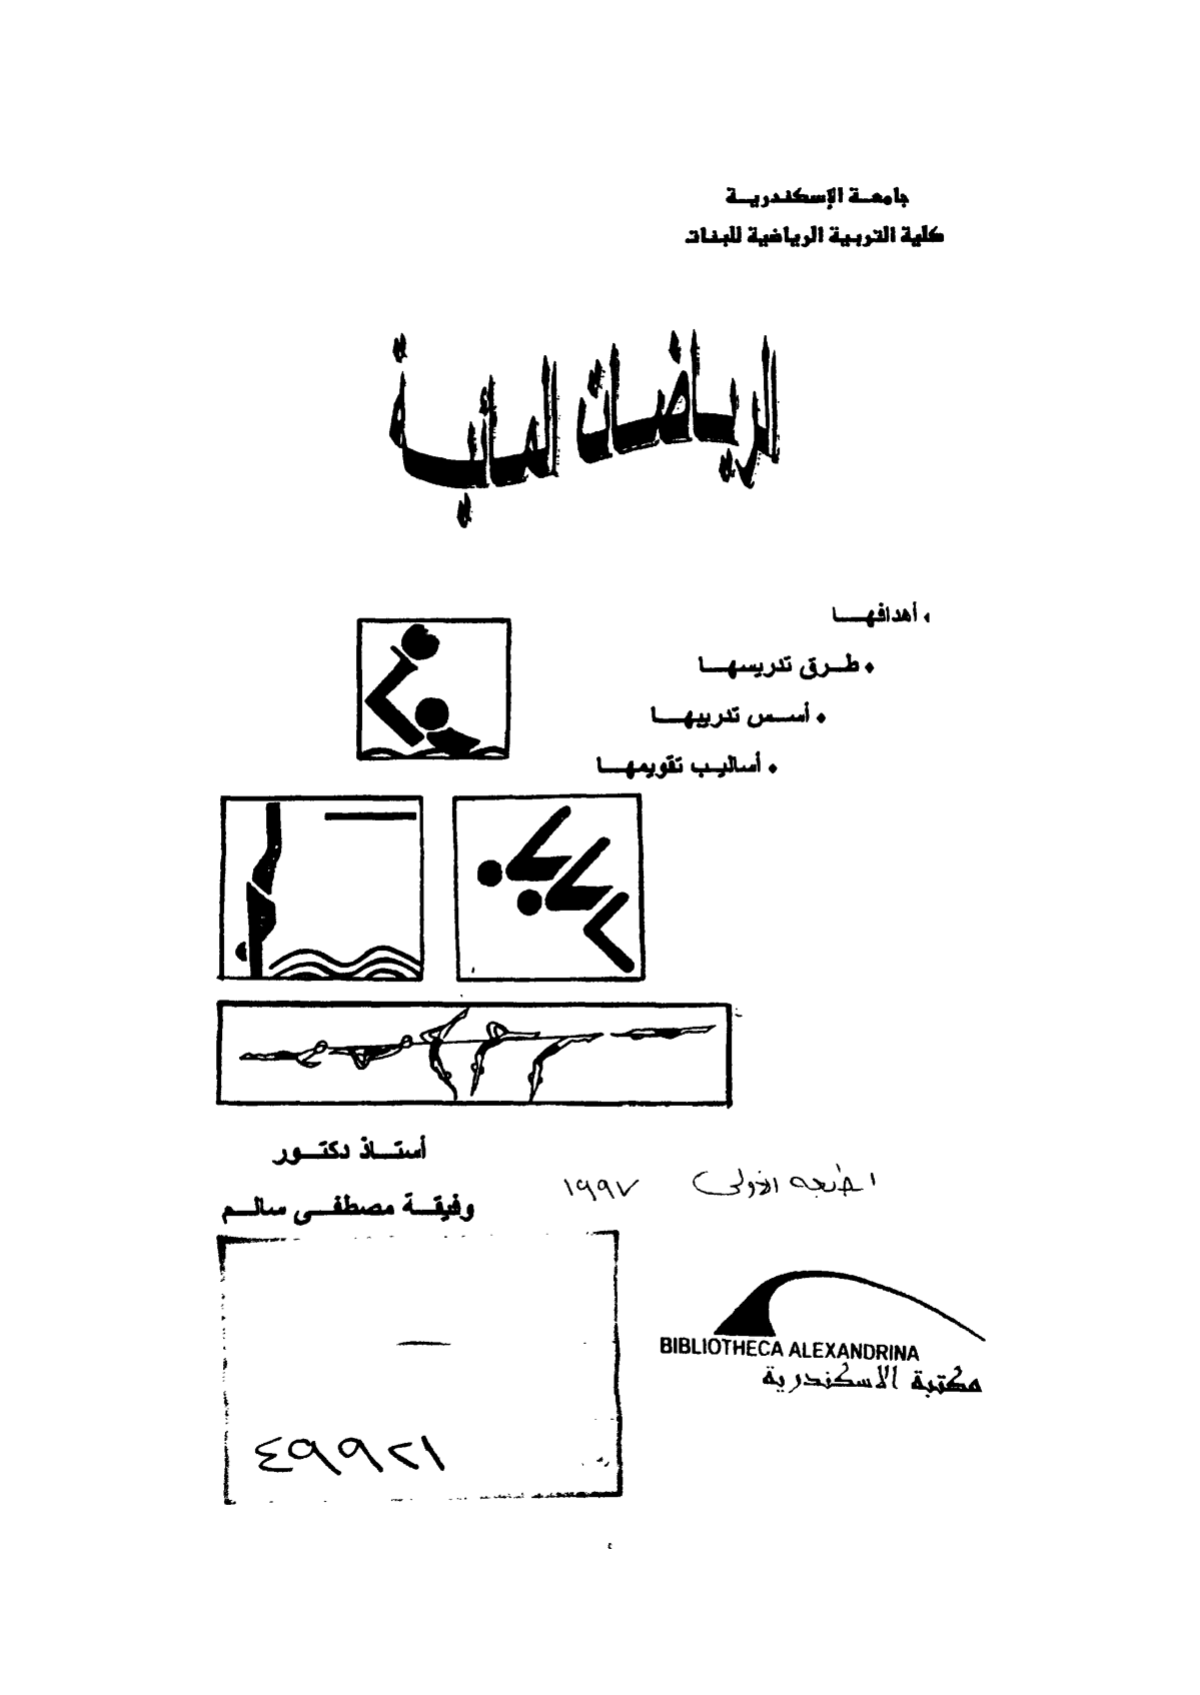 جامعة الإسكندرية
كلية التربية الرياضية للبنات
الرياضات المائية
أهدافها
• طرق تدريسها
• أسس تدريبها
• أساليب تقويمها
أستاذ دكتور
وفيقة مصطفى سالم
الطبعه الأولى ١٩٩٧
BIBLIOTHECA ALEXANDRINA
مكتبة الاسكندرية
٤٩٩٢١